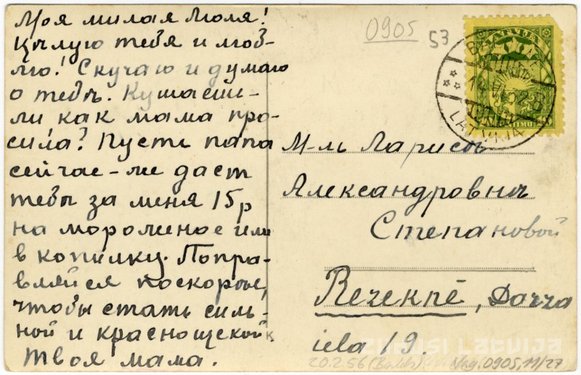 Моя милая Моля!
Цѣлую тебя и люб-
лю! Скучаю и думаю
о тебѣ. Кушаешь-
ли как мама про-
сила? Пусть папа
сейчас-ли даст
тебѣ за меня 15 р
на мороженое или
в копилку. Поправ-
вляйся поскорѣе,
чтобы стать силь-
ной и краснощекой
Твоя мама.
0905
53
LATVIJA
М-ль Ларисѣ
Александровнѣ
Степановой
Вецекпē, Dārza
iela 19.
ZUDUSI LATVIJA
Nng.0905,11/27